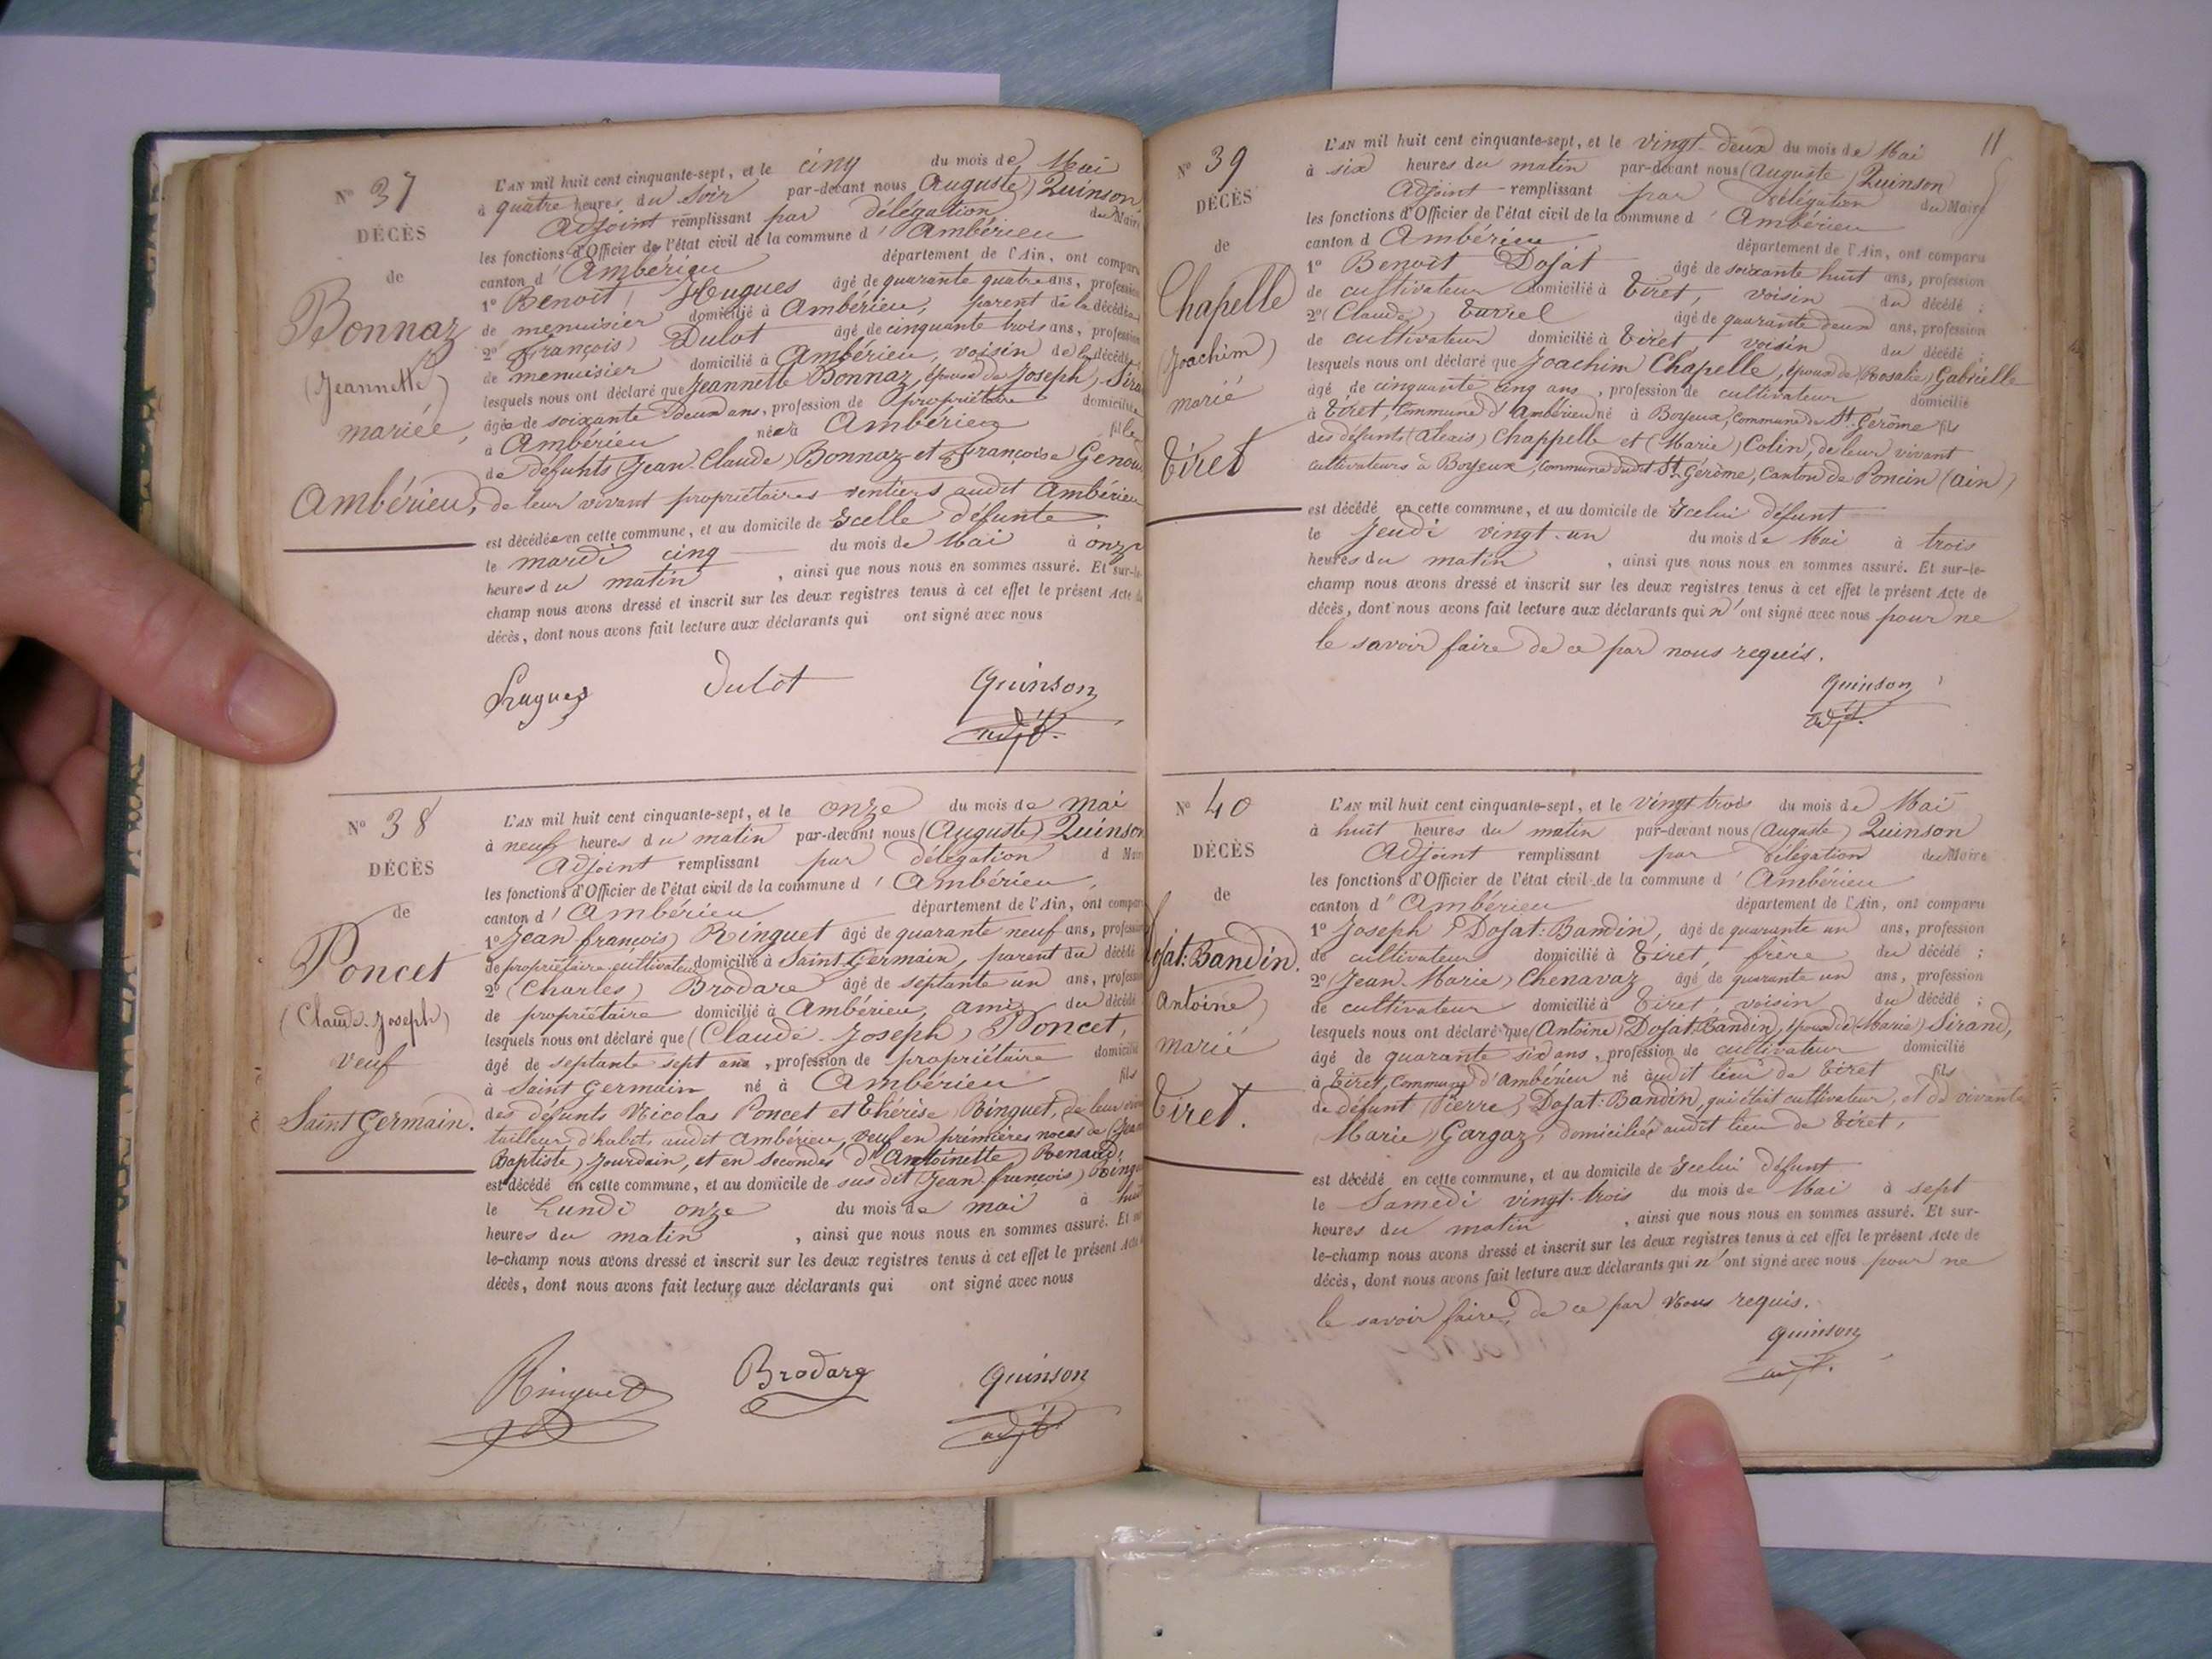 N° 37
DÉCÈS
de
Bonnaz
(Jeannette)
mariée,
Ambérieu,
L'AN mil huit cent cinquante-sept, et le cinq du mois de Mai
à quatre heures du soir par-devant nous (Auguste) Quinson,
Adjoint remplissant par délégation du Maire
les fonctions d'Officier de l'état civil de la commune d'Ambérieu
canton d'Ambérieu département de l'Ain, ont comparu
1° Benoit Hugues âgé de quarante quatre ans, profession
de menuisier domicilié à Ambérieu, parent de la décédée
2° (François) Dulot âgé de cinquante trois ans, profession
de menuisier domicilié à Ambérieu, voisin de la décédée;
lesquels nous ont déclaré que Jeannette Bonnaz, épouse de Joseph
âgée de soixante deux ans, profession de propriétaire domiciliée
à Ambérieu née à Ambérieu fille
de défunts (Jean-Claude) Bonnaz et Françoise
de leur vivant propriétaires rentiers audit Ambérieu
est décédée en cette commune, et au domicile de Icelle défunte
le mardi cinq du mois de Mai à onze
heures du matin, ainsi que nous nous en sommes assuré. Et sur-le-
champ nous avons dressé et inscrit sur les deux registres tenus à cet effet le présent Acte de
décès, dont nous avons fait lecture aux déclarants qui ont signé avec nous
Hugues Dulot Quinson
adjt.
N° 38
DÉCÈS
de
Poncet
(Claude-Joseph)
veuf
Saint Germain.
L'AN mil huit cent cinquante-sept, et le onze du mois de mai
à neuf heures du matin par-devant nous (Auguste) Quinson
Adjoint remplissant par délégation d Maire
les fonctions d'Officier de l'état civil de la commune d'Ambérieu,
canton d'Ambérieu département de l'Ain, ont comparu
1° (Jean françois) Ringuet âgé de quarante neuf ans, profession
de propriétaire cultivateur domicilié à Saint Germain, parent du décédé
2° (Charles) Brodare âgé de septante un ans, profession
de propriétaire domicilié à Ambérieu, ami du décédé
lesquels nous ont déclaré que (Claude-Joseph) Poncet,
âgé de septante sept ans, profession de propriétaire domicilié
à Saint Germain né à Ambérieu fils
des défunts Nicolas Poncet et Thérèse Ringuet, de leur
tailleur d'habits audit Ambérieu, veuf en prémières noces de (Jean
Baptiste) Jourdain, et en secondes d'(Antoinette) Renaud,
est décédé en cette commune, et au domicile de sus dit (Jean-françois)
le Lundi onze du mois de mai à huit
heures du matin, ainsi que nous nous en sommes assuré. Et sur-
le-champ nous avons dressé et inscrit sur les deux registres tenus à cet effet le présent Acte de
décès, dont nous avons fait lecture aux déclarants qui ont signé avec nous
Ringuet Brodare Quinson
adjt.
11
N° 39
DÉCÈS
de
Chapelle
(Joachim)
marié
Tiret
L'AN mil huit cent cinquante-sept, et le vingt-deux du mois de Mai
à six heures du matin par-devant nous (Auguste) Quinson
Adjoint remplissant par Délégation du Maire
les fonctions d'Officier de l'état civil de la commune d'Ambérieu
canton d Ambérieu département de l'Ain, ont comparu
1° Benoît Dojat âgé de soixante huit ans, profession
de cultivateur domicilié à Tiret, voisin du décédé;
2° (Claude) Turrel âgé de quarante deux ans, profession
de cultivateur domicilié à Tiret, voisin du décédé;
lesquels nous ont déclaré que Joachim Chapelle, époux de (Rosalie) Gabrielle
âgé de cinquante cinq ans, profession de cultivateur domicilié
à Tiret, Commune d'Ambérieu né à Boyeux, Commune de St. Gérôme fils
des défunts (Alexis) Chappelle et (Marie) Colin, de leur vivant
cultivateurs à Boyeux, Commune dudit St. Gérôme, Canton de Poncin (ain)
est décédé en cette commune, et au domicile de Icelui défunt
le Jeudi vingt-un du mois de Mai à trois
heures du matin, ainsi que nous nous en sommes assuré. Et sur-le-
champ nous avons dressé et inscrit sur les deux registres tenus à cet effet le présent Acte de
décès, dont nous avons fait lecture aux déclarants qui n'ont signé avec nous pour ne
le savoir faire de ce par nous requis.
Quinson
adjt.
N° 40
DÉCÈS
de
Dojat-Bandin.
(Antoine)
marié
Tiret.
L'AN mil huit cent cinquante-sept, et le vingt trois du mois de Mai
à huit heures du matin par-devant nous (Auguste) Quinson
Adjoint remplissant par délégation du Maire
les fonctions d'Officier de l'état civil de la commune d'Ambérieu
canton d'Ambérieu département de l'Ain, ont comparu
1° Joseph Dojat-Bandin, âgé de quarante un ans, profession
de cultivateur domicilié à Tiret, frère du décédé;
2° (Jean-Marie) Chenavaz âgé de quarante un ans, profession
de cultivateur domicilié à Tiret, voisin du décédé;
lesquels nous ont déclaré que (Antoine) Dojat-Bandin, époux de (Marie) Sirand,
âgé de quarante six ans, profession de cultivateur domicilié
à Tiret, Commune d'Ambérieu né audit lieu de Tiret fils
de défunt (Pierre) Dojat-Bandin, qui était cultivateur, et de vivante
(Marie) Gargaz, domiciliée audit lieu de Tiret,
est décédé en cette commune, et au domicile de Icelui défunt
le Samedi vingt-trois du mois de Mai à sept
heures du matin, ainsi que nous nous en sommes assuré. Et sur-
le-champ nous avons dressé et inscrit sur les deux registres tenus à cet effet le présent Acte de
décès, dont nous avons fait lecture aux déclarants qui n'ont signé avec nous pour ne
le savoir faire, de ce par Nous requis.
Quinson
adjt.